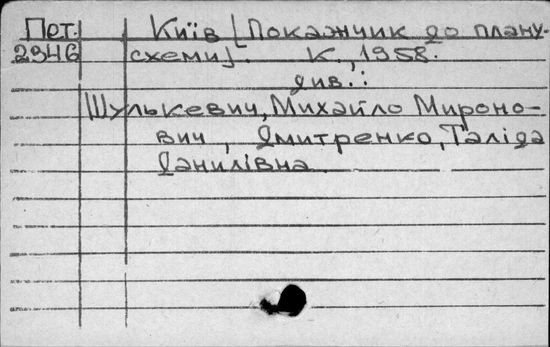 Пот. Київ [Покажчик до плану-
2946 схеми]. К., 1958.
див.:
Шулькевич, Михайло Мироно-
вич, Дмитренко, Таліда
Данилівна